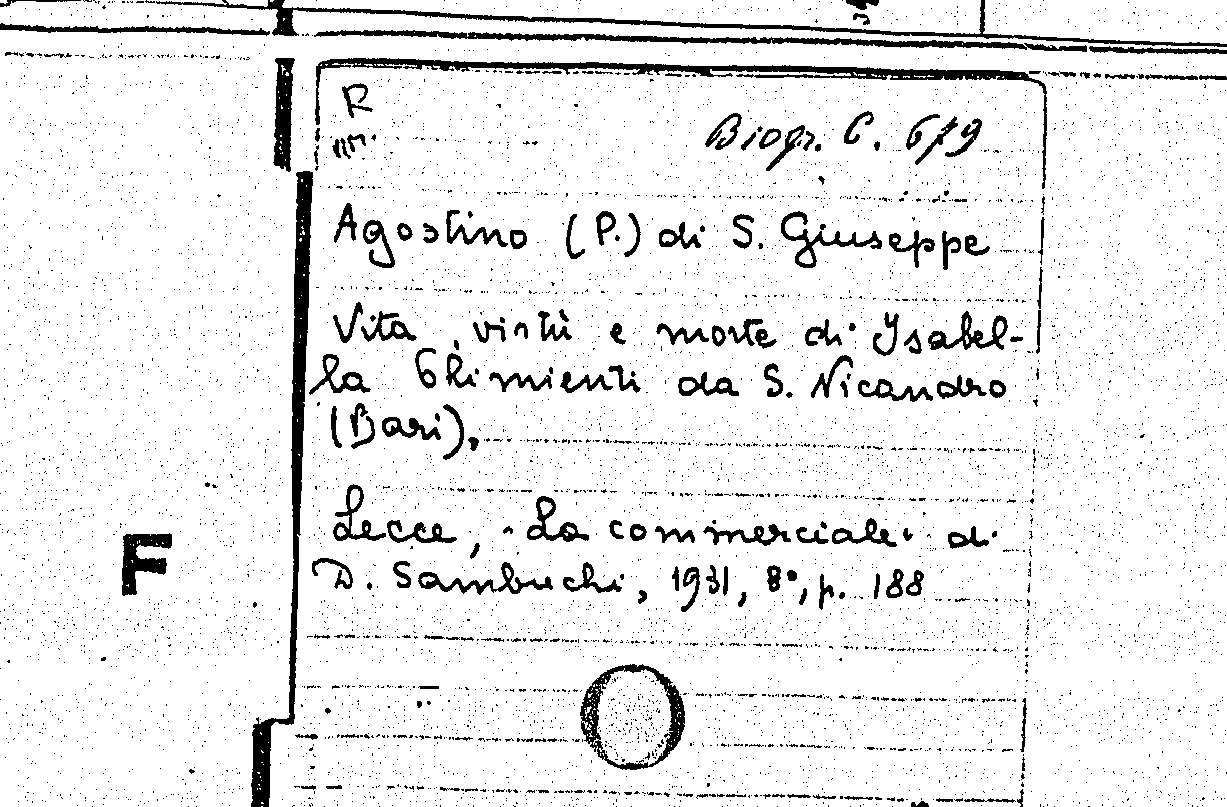 R
Biogr. C. 679
Agostino (P.) di S. Giuseppe
Vita, virtù e morte di Ysabel-
la Chimienti da S. Nicandro
(Bari).
Lecce, "La commerciale" di
D. Sambuchi, 1931, 8°, p. 188
F